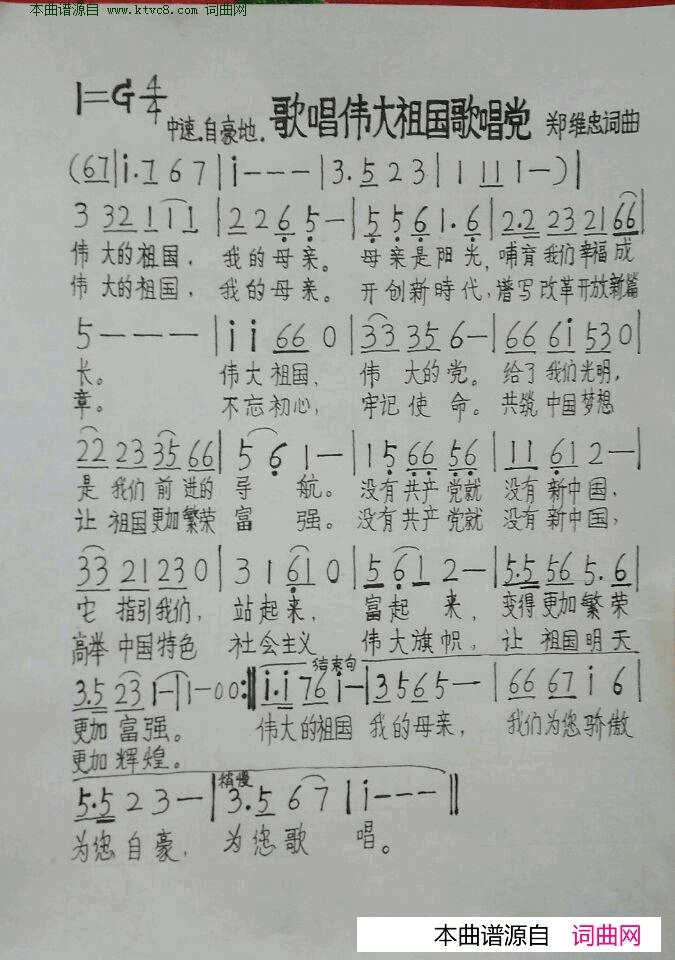 本曲谱源自 www.ktvc8.com 词曲网
1=G 4/4 中速.自豪地. 歌唱伟大祖国歌唱党 郑维忠词曲
(67|i.7 6 7|i---|3.5 2 3|1 11 1-)|
3 32 1 1 1|2 2 6 5-|5 5 6 1.6|2.2 23 21 66|
伟大的祖国，我的母亲。母亲是阳光，哺育我们幸福成
伟大的祖国，我的母亲。开创新時代，谱写改革开放新篇
5---|i i 66 0|33 35 6-|66 6i 53 0|
长。伟大祖国，伟大的党。给了我们光明，
章。不忘初心，牢记使命。共筑中国梦想
22 23 35 66|5 6 1-|1 5 66 56|11 61 2-|
是我们前进的导航。没有共产党就没有新中国，
让祖国更加繁荣富强。没有共产党就没有新中国，
33 21 23 0|3 1 61 0|5 6 1 2-|5.5 56 5.6|
它指引我们，站起来，富起来，变得更加繁荣
高举中国特色社会主义伟大旗帜，让祖国明天
结束句
3.5 23 1-|1-00:‖i.i 76 i-|3565-|66 67 i 6|
更加富强。伟大的祖国我的母亲，我们为您骄傲
更加辉煌。
稍慢
5.5 2 3-|3.5 6 7|i---‖
为您自豪，为您歌唱。
本曲谱源自 词曲网